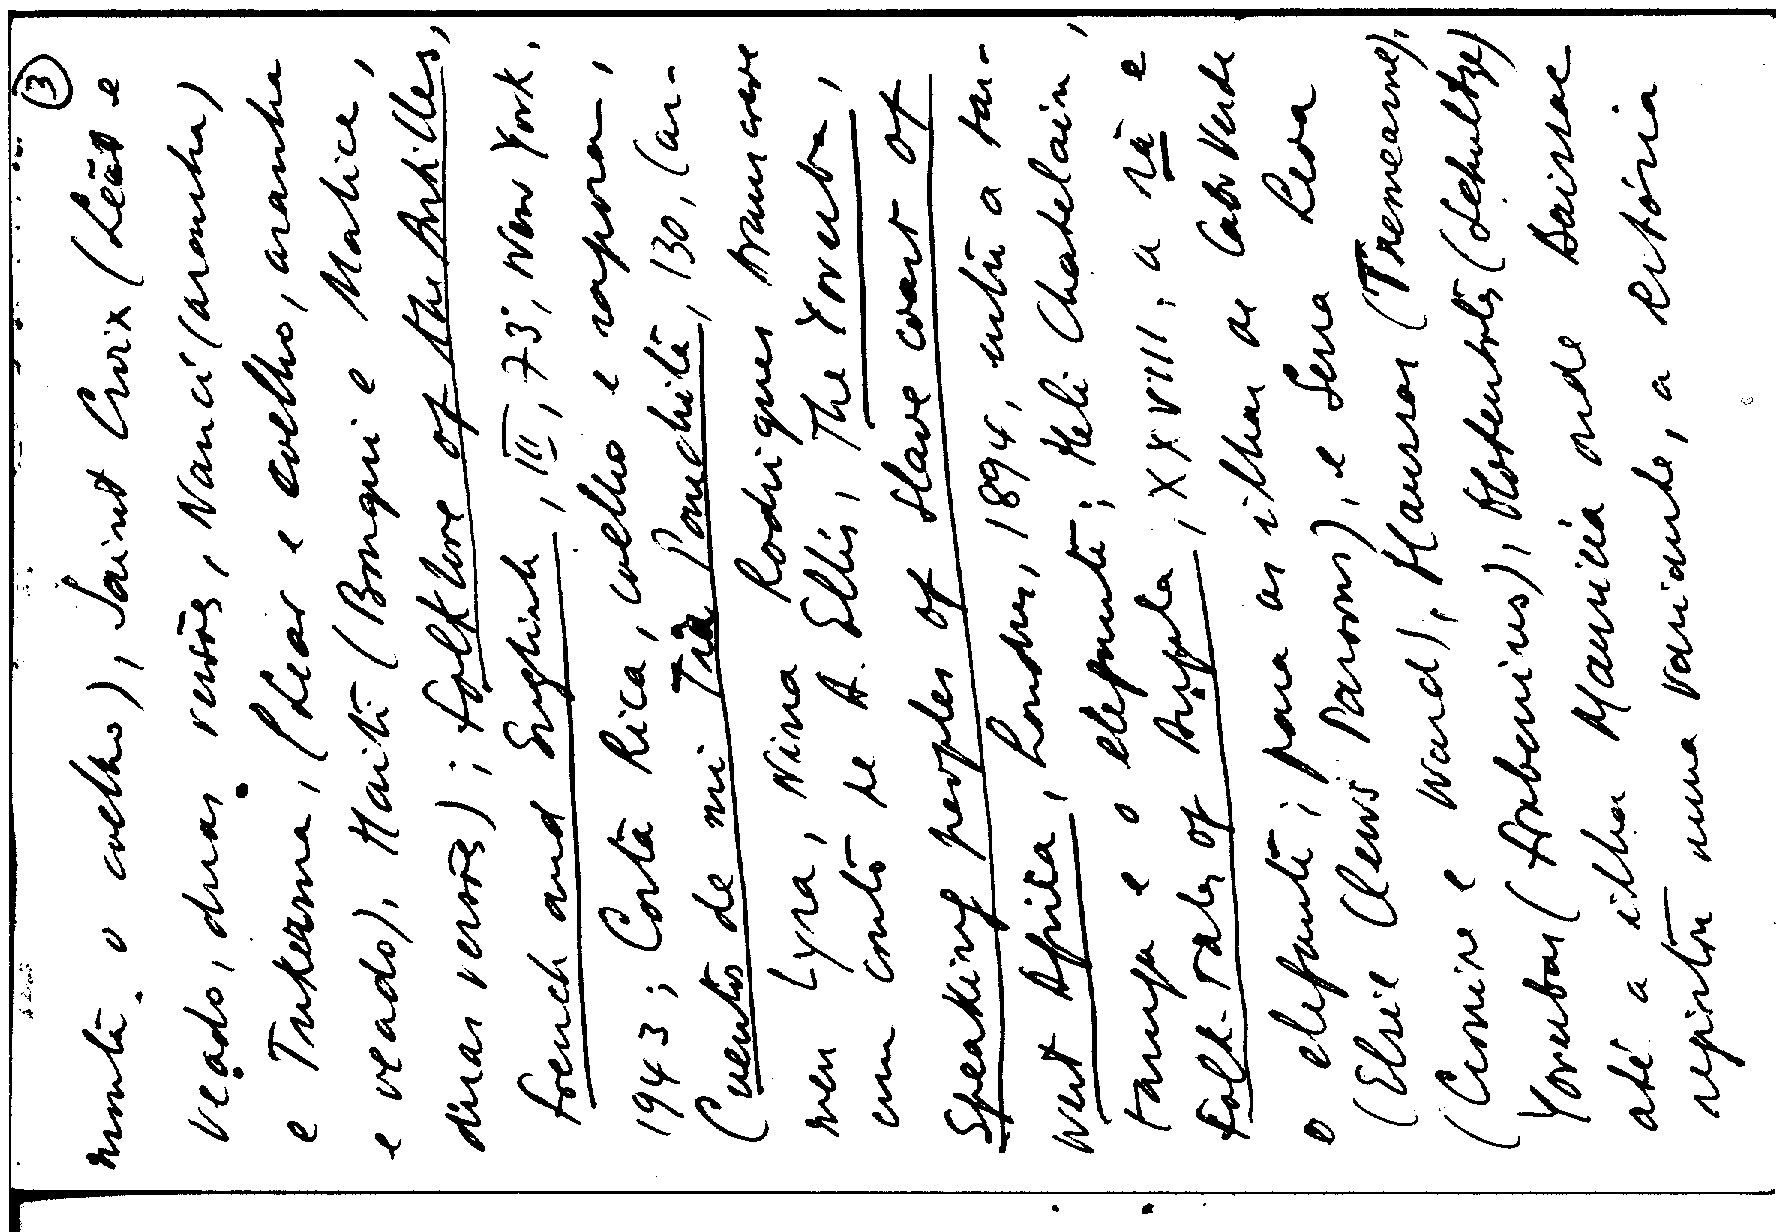 ③
menta o coelho), Saint Croix (Leão e
veado, duas versões, Nanci (aranha)
e Tukerma, (Lear e coelho, aranha
e veado), Haiti (Bouqui e Malice,
duas versões); Folk lore of the Antilles,
french and English, III, 73, New York,
1943; Costa Rica, coelho e raposa,
Cuentos de mi Tia Panchita, 130, Car-
men Lyra, Nina Rodrigues transcreve
um conto de A. Ellis, The Yoruba
Speaking peoples of Slave coast of
West Africa, Londres, 1894, entre a tar-
taruga e o elefante; Heli Chatelain,
Folk-Tales of Angola, XXVIII, a rã e
o elefante; para as ilhas de Cabo Verde
(Elsie Clews Parsons), e Serra Leoa
(Cronise e Ward), Haussas (Tremearne),
Yorubas (Frobenius), Hotentotes (Schultze)
até a ilha Maurícia onde Baissac
registou uma variante, a estória